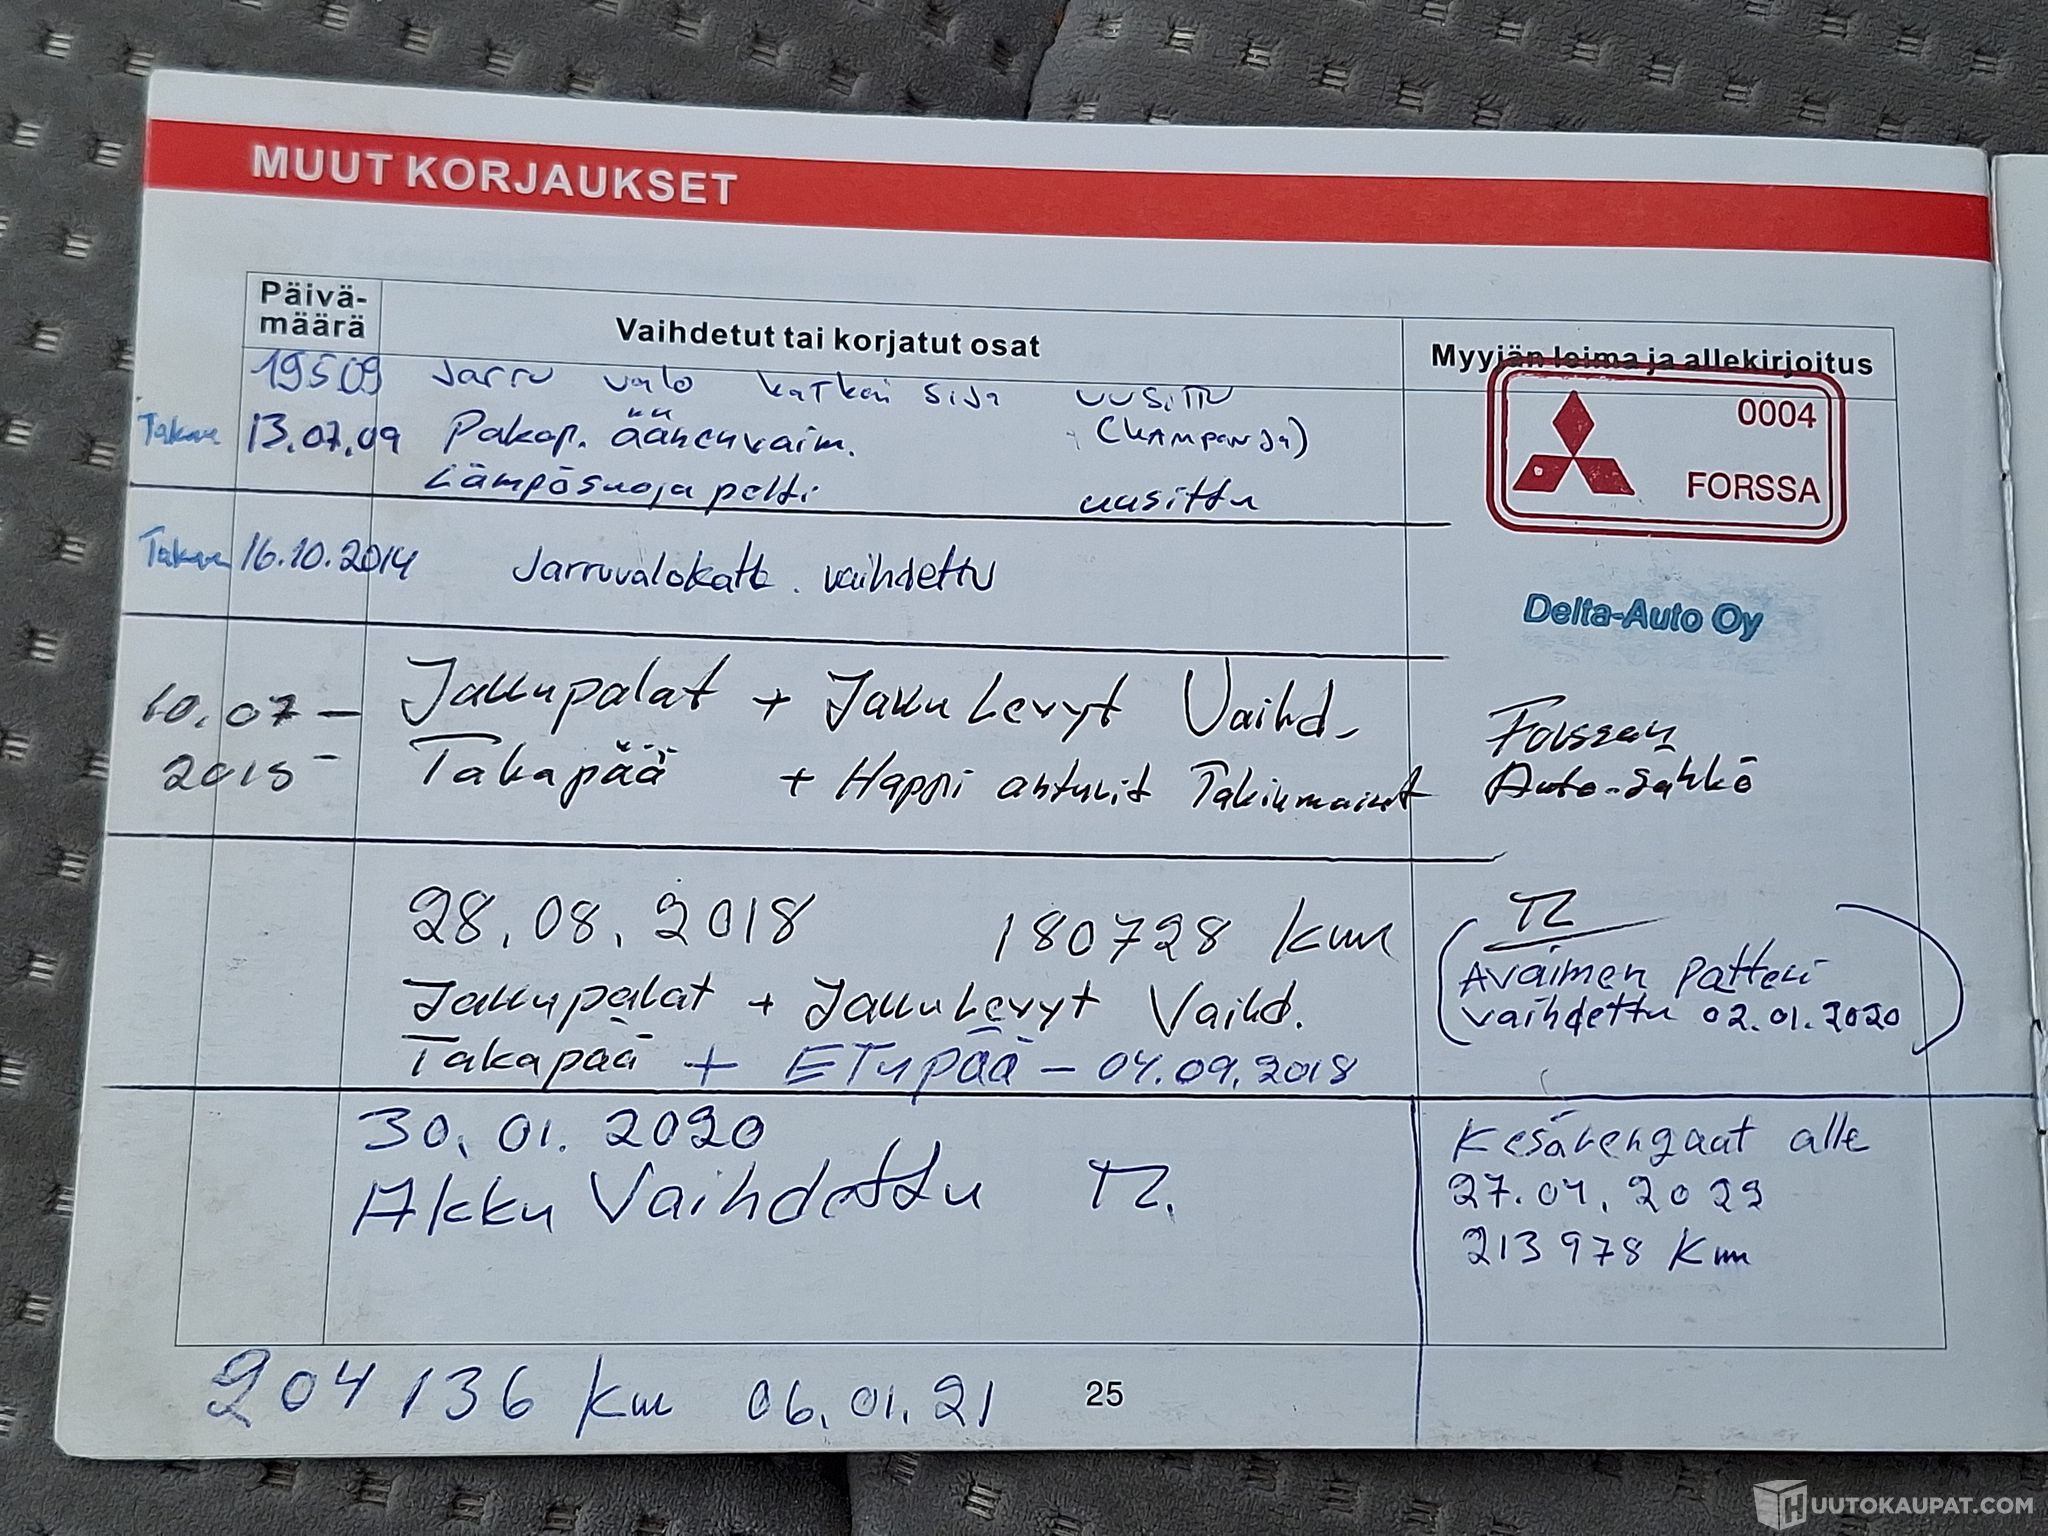 MUUT KORJAUKSET
Päivä-
määrä
Vaihdetut tai korjatut osat
Myyjän leima ja allekirjoitus
19509 Jarru valo katkaisija uusittu
Takuu 13.07.09 Pakop. äänenvaim. (kampanja)
Lämpösuoja pelti uusittu
0004
FORSSA
Takuu 16.10.2014 Jarruvalokatk. vaihdettu
Delta-Auto Oy
10.07- Jarrupalat + JarruLevyt Vaihd.
2015- Takapää + Happi anturit Takimmaiset
Forssan
Auto-Sähkö
28.08.2018 180728 km
Jarrupalat + JarruLevyt Vaihd.
Takapää + ETupää - 04.09.2018
(Avaimen patteri
vaihdettu 02.01.2020)
30.01.2020
Akku Vaihdettu
Kesärengaat alle
27.04.2022
213978 Km
204136 km 06.01.21
25
HUUTOKAUPAT.COM